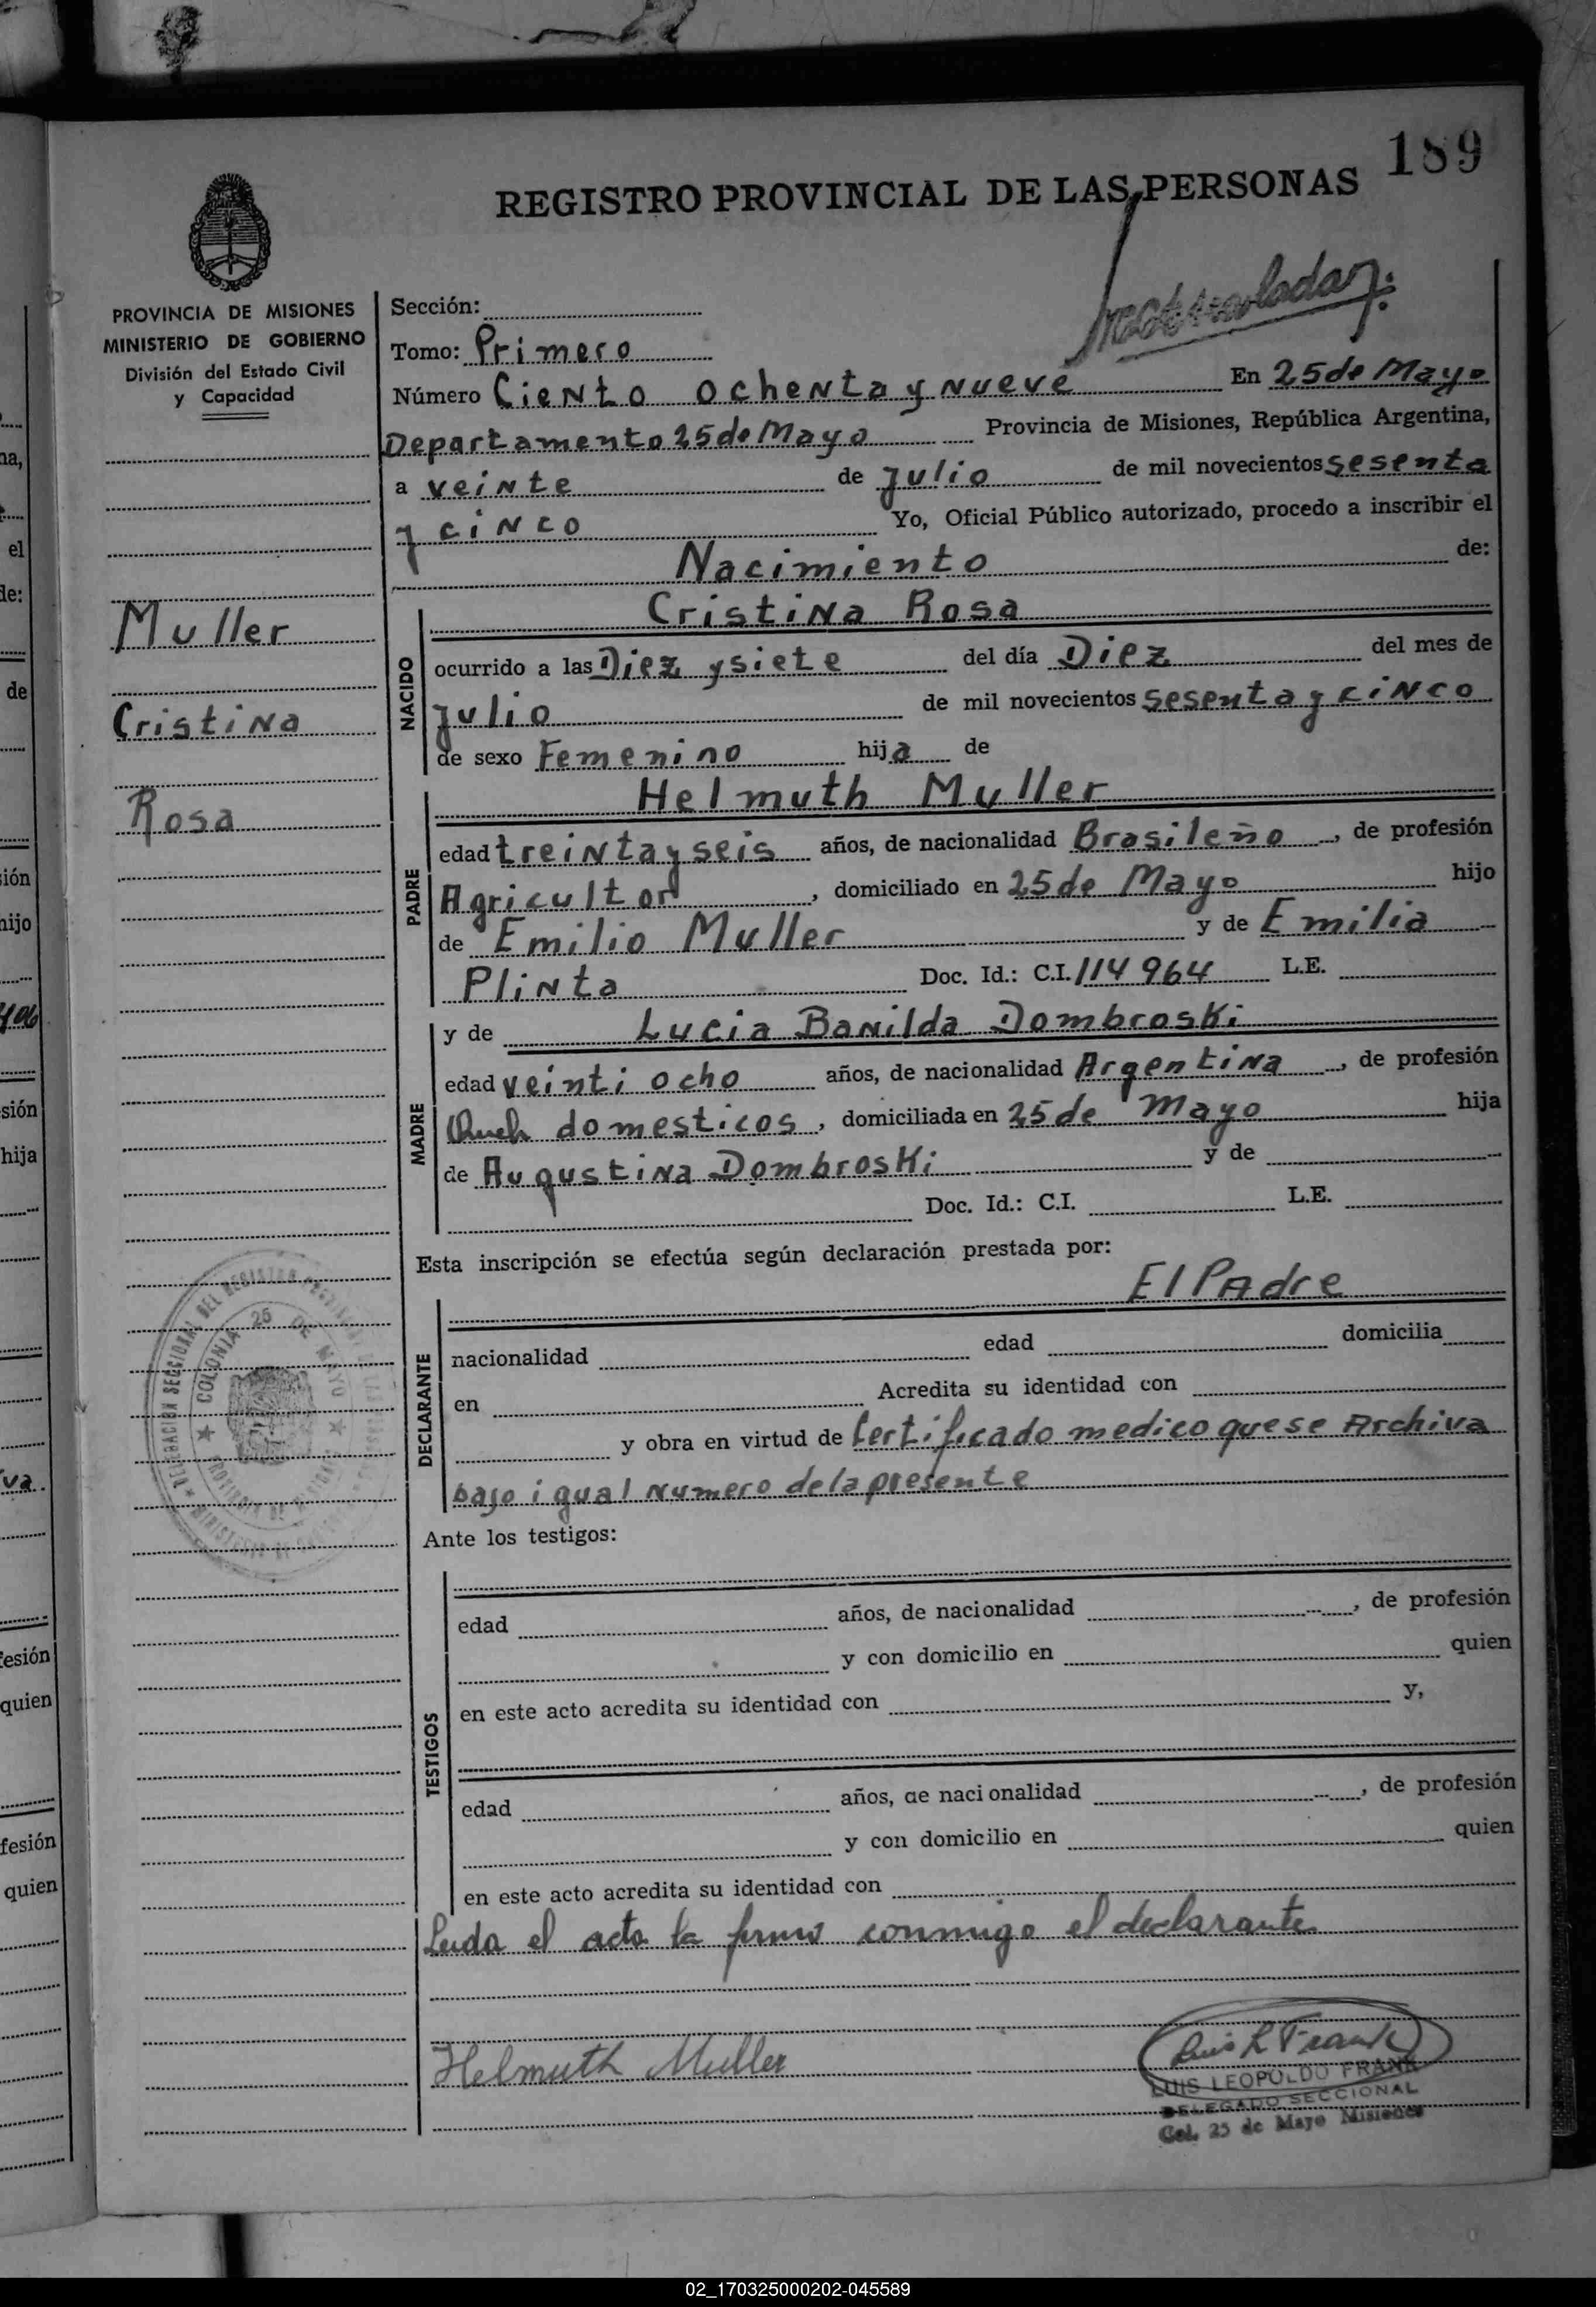 189
REGISTRO PROVINCIAL DE LAS PERSONAS
PROVINCIA DE MISIONES
MINISTERIO DE GOBIERNO
División del Estado Civil
y Capacidad
Muller
Cristina
Rosa
Sección:
Tomo: Primero
Número Ciento ochenta y nueve En 25 de Mayo
Departamento 25 de Mayo Provincia de Misiones, República Argentina,
a veinte de julio de mil novecientos sesenta
y cinco Yo, Oficial Público autorizado, procedo a inscribir el
Nacimiento de:
NACIDO
Cristina Rosa
ocurrido a las Diez y siete del día Diez del mes de
julio de mil novecientos sesenta y cinco
de sexo Femenino hija de
PADRE
Helmuth Muller
edad treinta y seis años, de nacionalidad Brasileño, de profesión
Agricultor, domiciliado en 25 de Mayo hijo
de Emilio Muller y de Emilia
Plinta Doc. Id.: C.I. 114964 L.E.
MADRE
y de Lucia Banilda Dombroski
edad veinti ocho años, de nacionalidad Argentina, de profesión
domesticos, domiciliada en 25 de Mayo hija
de Augustina Dombroski y de
Doc. Id.: C.I. L.E.
Esta inscripción se efectúa según declaración prestada por:
DECLARANTE
El PAdre
nacionalidad edad domicilia
en Acredita su identidad con
y obra en virtud de Certificado medico que se Archiva
bajo igual numero de la presente
Ante los testigos:
TESTIGOS
edad años, de nacionalidad, de profesión
y con domicilio en quien
en este acto acredita su identidad con y,
edad años, de nacionalidad, de profesión
y con domicilio en quien
en este acto acredita su identidad con
Leida el acta la firma conmigo el declarante
Helmuth Muller
Luis L Frank
LUIS LEOPOLDO FRANK
DELEGADO SECCIONAL
Col. 25 de Mayo Misiones
COLONIA 25 DE MAYO
02_170325000202-045589